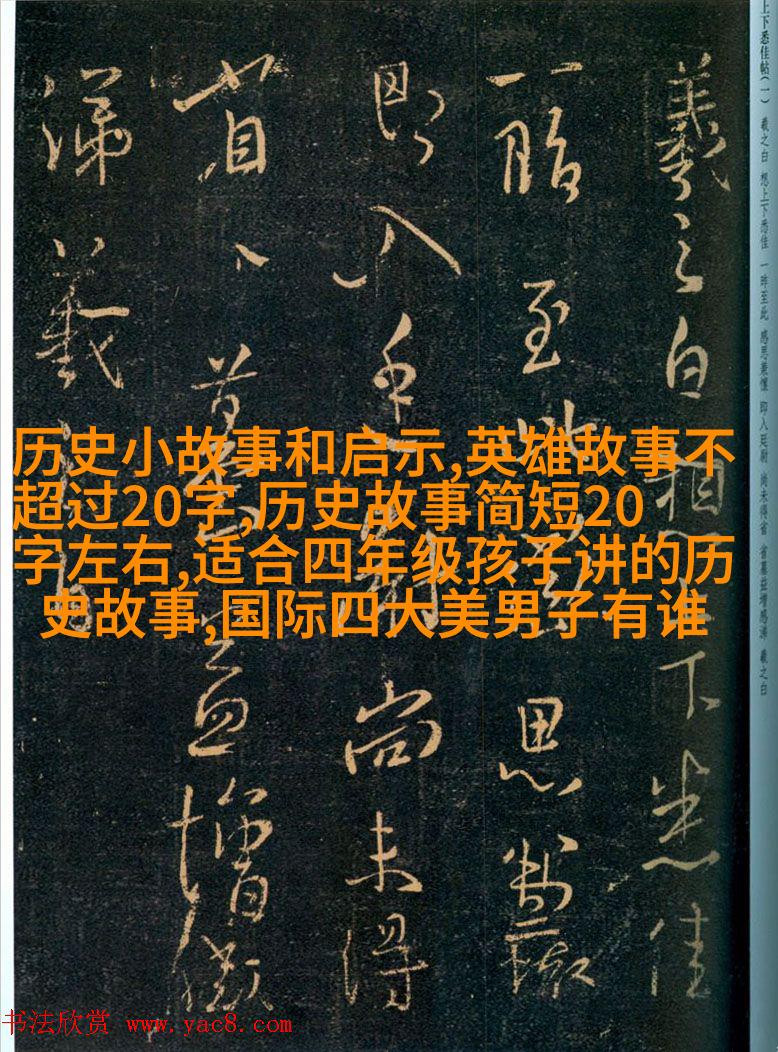 上下悉佳帖(一) 羲之白 想上下悉佳 一昨至此 感思兼懷 即入廷尉 尚未得省 省墓益增感涕 羲之白
羲之白想上下悉佳
一昨至此 思
即入 尚未得
省墓益增感
涕羲之白
历史小故事和启示,英雄故事不
超过20字,历史故事简短20
字左右,适合四年级孩子讲的历
史故事,国际四大美男子有谁
书法欣赏 www.yac8.com